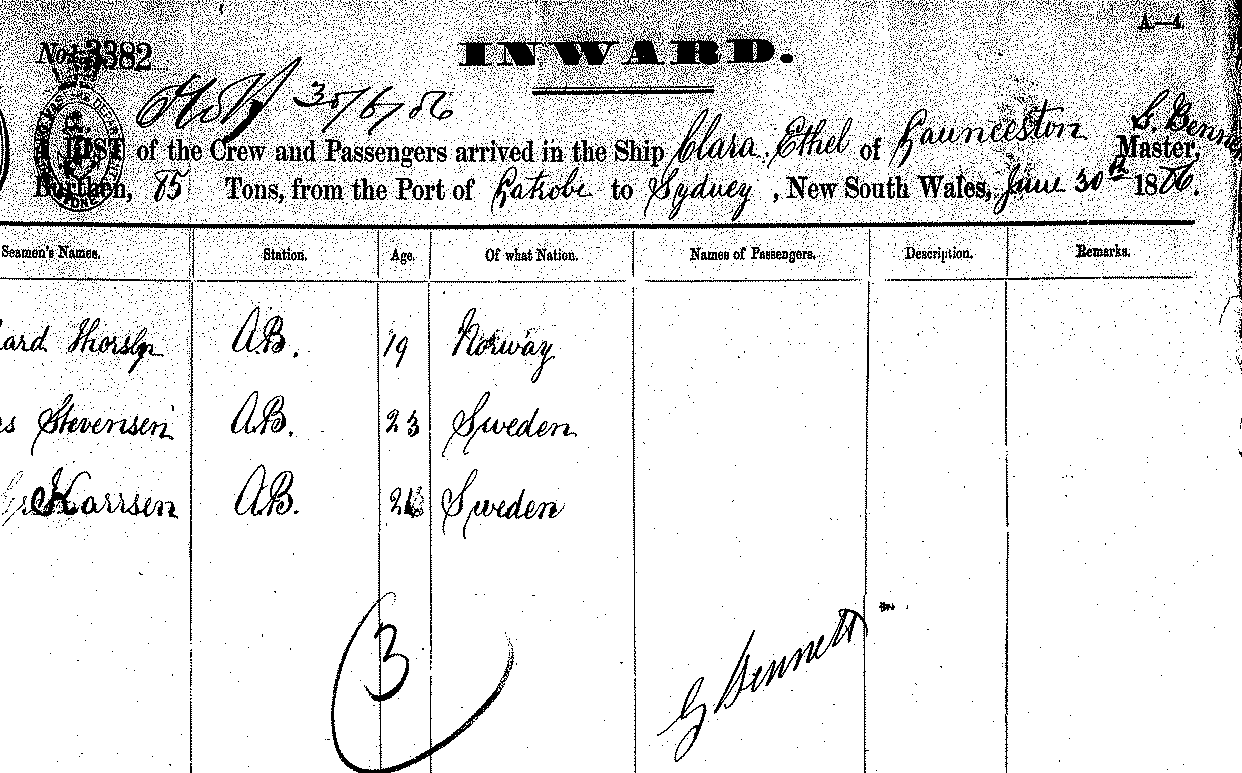 No. 3382
INWARD.
30/6/86
LIST of the Crew and Passengers arrived in the Ship Clara Ethel of Launceston G. Bennett Master,
Burthen, 85 Tons, from the Port of Latrobe to Sydney, New South Wales, June 30th 1886.
Seamen's Names. Station. Age. Of what Nation. Names of Passengers. Description. Remarks.
ard AB. 19 Norway
Stevensen AB. 23 Sweden
Karrsen AB. Sweden
3
G Bennett